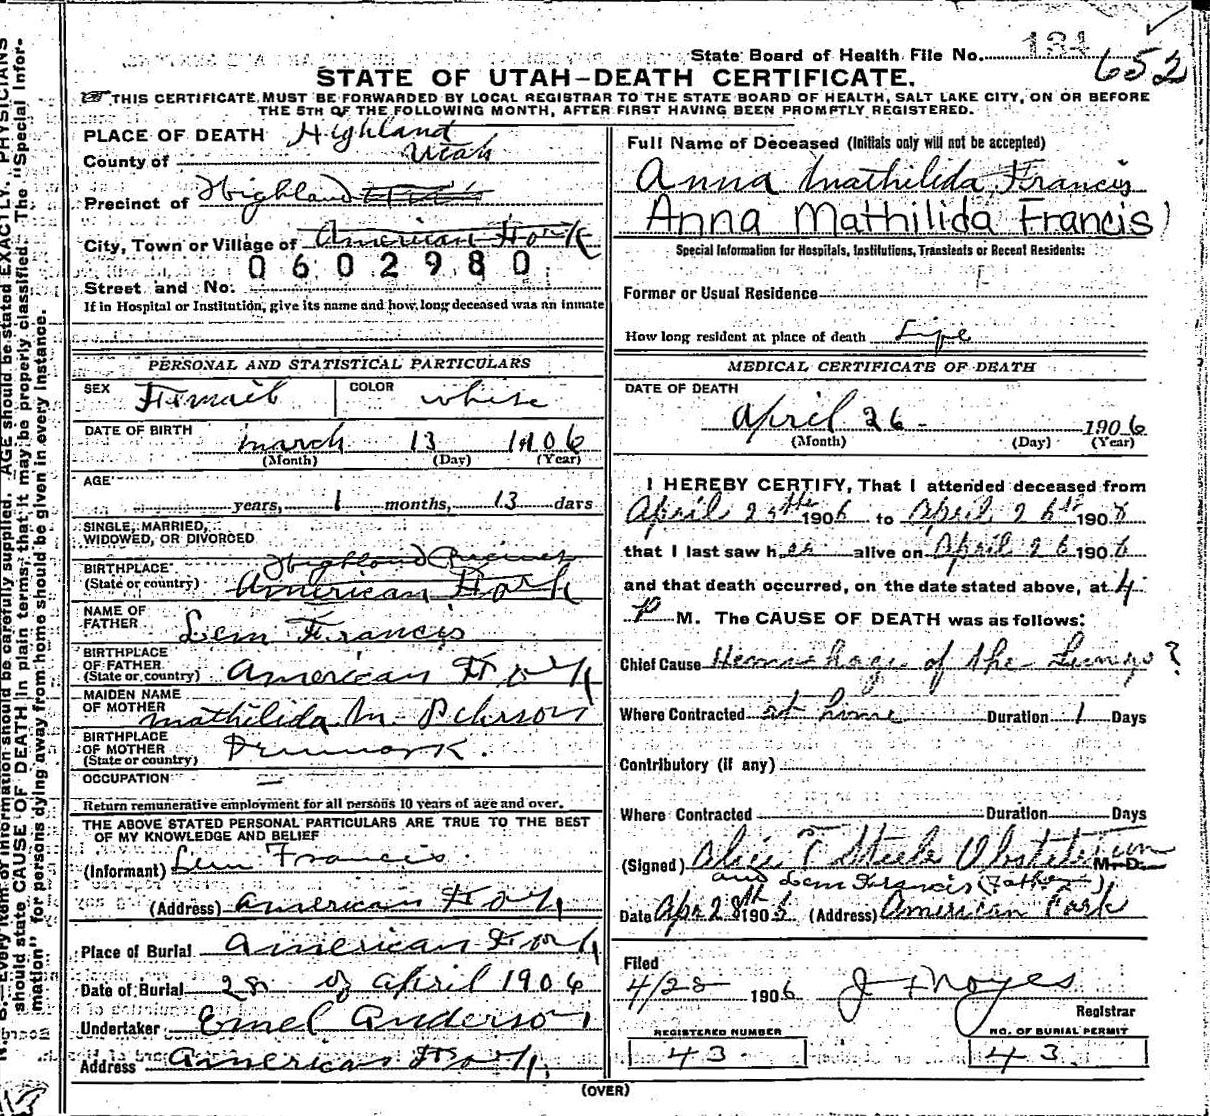 State Board of Health File No. 184 652
STATE OF UTAH—DEATH CERTIFICATE.
THIS CERTIFICATE MUST BE FORWARDED BY LOCAL REGISTRAR TO THE STATE BOARD OF HEALTH, SALT LAKE CITY, ON OR BEFORE
THE 5TH OF THE FOLLOWING MONTH, AFTER FIRST HAVING BEEN PROMPTLY REGISTERED.
PLACE OF DEATH Highland
County of Utah
Precinct of Highland
City, Town or Village of American Fork
0602980
Street and No.
If in Hospital or Institution, give its name and how long deceased was an inmate
PERSONAL AND STATISTICAL PARTICULARS
SEX Femail COLOR white
DATE OF BIRTH march 13 1906
(Month) (Day) (Year)
AGE
years, 1 months, 13 days
SINGLE, MARRIED,
WIDOWED, OR DIVORCED
Highland Precinct
BIRTHPLACE
(State or country) American Fork
NAME OF
FATHER Lem Francis
BIRTHPLACE
OF FATHER
(State or country) American Fork
MAIDEN NAME
OF MOTHER mathilida M.
BIRTHPLACE
OF MOTHER
(State or country) Denmark.
OCCUPATION —
Return remunerative employment for all persons 10 years of age and over.
THE ABOVE STATED PERSONAL PARTICULARS ARE TRUE TO THE BEST
OF MY KNOWLEDGE AND BELIEF
(Informant) Lem Francis
(Address) American Fork
Place of Burial American Fork
Date of Burial 28 of April 1906
Undertaker Emel Anderson
Address American Fork
Full Name of Deceased (Initials only will not be accepted)
Anna Mathilida Francis
Anna Mathilida Francis)
Special Information for Hospitals, Institutions, Transients or Recent Residents:
Former or Usual Residence
How long resident at place of death Life
MEDICAL CERTIFICATE OF DEATH
DATE OF DEATH
April 26 1906
(Month) (Day) (Year)
I HEREBY CERTIFY, That I attended deceased from
April 25th 1906 to April 26th 1906
that I last saw her alive on April 26 1906
and that death occurred, on the date stated above, at 4
P M. The CAUSE OF DEATH was as follows:
Chief Cause Hemorhage of the Lungs?
Where Contracted at home Duration 1 Days
Contributory (if any)
Where Contracted Duration Days
(Signed) Alice T Steele Obstetrician M. D.
and Lem Francis (Father)
Date Apr 28th 1906 (Address) American Fork
Filed
4/28 1906 J F Noyes
Registrar
REGISTERED NUMBER NO. OF BURIAL PERMIT
43 43
(OVER)
N. B.—Every item of information should be carefully supplied. AGE should be stated EXACTLY. PHYSICIANS
should state CAUSE OF DEATH in plain terms, that it may be properly classified. The "Special Infor-
mation" for persons dying away from home should be given in every instance.